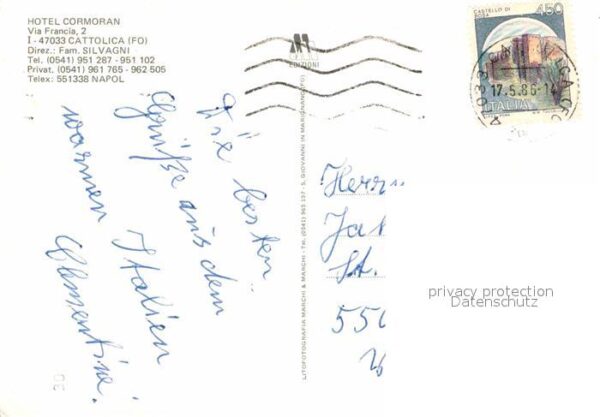 HOTEL CORMORAN
Via Francia, 2
I - 47033 CATTOLICA (FO)
Direz.: Fam. SILVAGNI
Tel. (0541) 951 287 - 951 102
Privat. (0541) 961 765 - 962 505
Telex: 551338 NAPOL
Die besten
Grüße aus dem
warmen Italien
Clementine.
EDIZIONI
LITOFOTOGRAFIA MARCHI & MARCHI - Tel. (0541) 965 197 - S. GIOVANNI IN MARIGNANO (FO)
CASTELLO DI
ROSA
450
ITALIA
17.5.86-14
Herrn
St.
privacy protection
Datenschutz